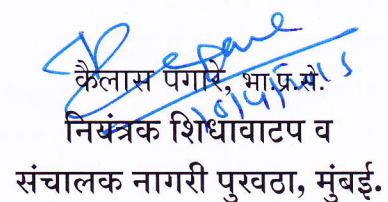 कैलास पगारे, भा.प्र.से.
नियंत्रक शिधावाटप व
संचालक नागरी पुरवठा, मुंबई.